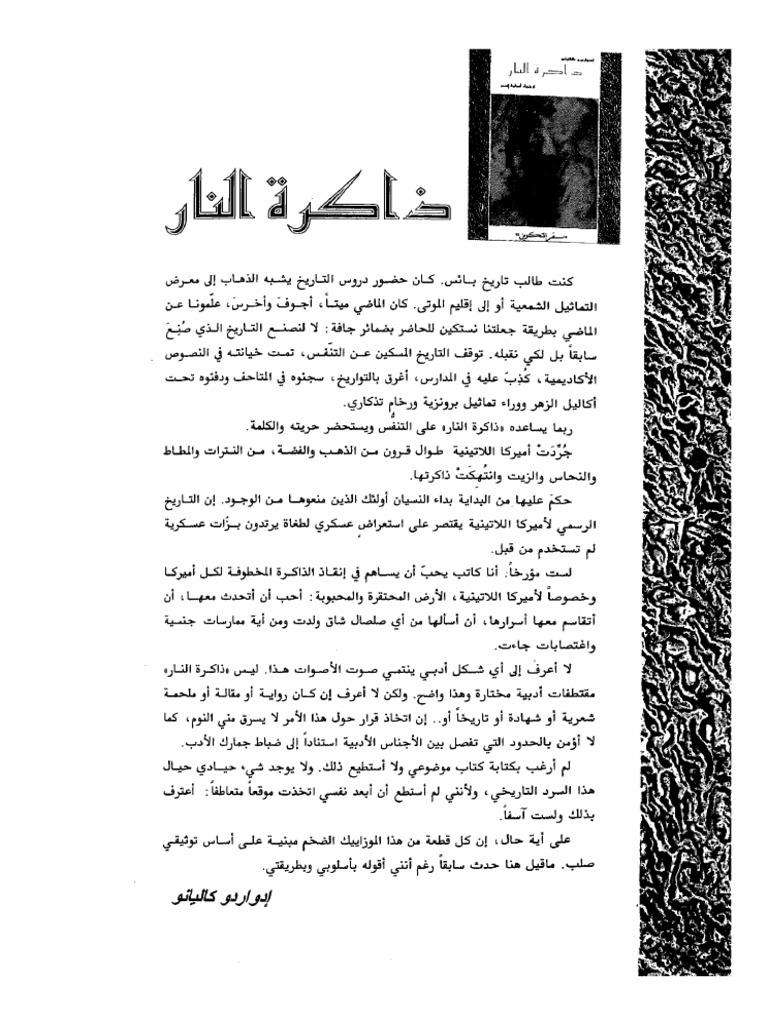 ذاكرة النار
«سفر التكوين»
ذاكرة النار
كنت طالب تاريخ بائس. كان حضور دروس التاريخ يشبه الذهاب إلى معرض
التماثيل الشمعية أو إلى إقليم الموتى. كان الماضي ميتاً، أجوفَ وأخرسَ، علّمونا عن
الماضي بطريقة جعلتنا نستكين للحاضر بضمائر جافة: لا لنصنع التاريخ الذي صُنِعَ
سابقاً بل لكي نقبله. توقف التاريخ المسكين عن التنّفس، تمت خيانته في النصوص
الأكاديمية، كُذِبَ عليه في المدارس، أغرق بالتواريخ، سجنوه في المتاحف ودفنوه تحت
أكاليل الزهر ووراء تماثيل برونزية ورخام تذكاري.
ربما يساعده «ذاكرة النار» على التنفُّس ويستحضر حريته والكلمة.
جُرِّدَتْ أميركا اللاتينية طوال قرون من الذهب والفضة، من النترات والمطاط
والنحاس والزيت وانتُهكَتْ ذاكرتها.
حكمَ عليها من البداية بداء النسيان أولئك الذين منعوها من الوجود. إن التاريخ
الرسمي لأميركا اللاتينية يقتصر على استعراض عسكري لطغاة يرتدون بزّات عسكرية
لم تستخدم من قبل.
لست مؤرخاً: أنا كاتب يحبّ أن يساهم في إنقاذ الذاكرة المخطوفة لكل أميركا
وخصوصاً لأميركا اللاتينية، الأرض المحتقرة والمحبوبة: أحب أن أتحدث معها، أن
أتقاسم معها أسرارها، أن أسألها من أي صلصال شاق ولدت ومن أية ممارسات جنسية
واغتصابات جاءت.
لا أعرف إلى أي شكل أدبي ينتمي صوت الأصوات هذا. ليس «ذاكرة النار»
مقتطفات أدبية مختارة وهذا واضح. ولكن لا أعرف إن كان رواية أو مقالة أو ملحمة
شعرية أو شهادة أو تاريخاً أو.. إن اتخاذ قرار حول هذا الأمر لا يسرق مني النوم، كما
لا أؤمن بالحدود التي تفصل بين الأجناس الأدبية استناداً إلى ضباط جمارك الأدب.
لم أرغب بكتابة كتاب موضوعي ولا أستطيع ذلك. ولا يوجد شيء حيادي حيال
هذا السرد التاريخي، ولأنني لم أستطع أن أبعد نفسي اتخذت موقعاً متعاطفاً: أعترف
بذلك ولست آسفاً.
على أية حال، إن كل قطعة من هذا الموزاييك الضخم مبنية على أساس توثيقي
صلب. ماقيل هنا حدث سابقاً رغم أنني أقوله بأسلوبي وبطريقتي.
إدواردو كاليانو